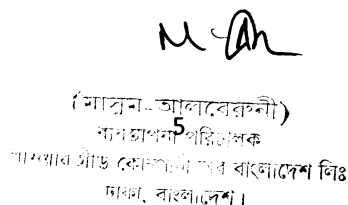 (মাসুম-আলবেরুনী)
5
ব্যবস্থাপনা পরিচালক
পাওয়ার গ্রীড কোম্পানী অব বাংলাদেশ লিঃ
ঢাকা, বাংলাদেশ।